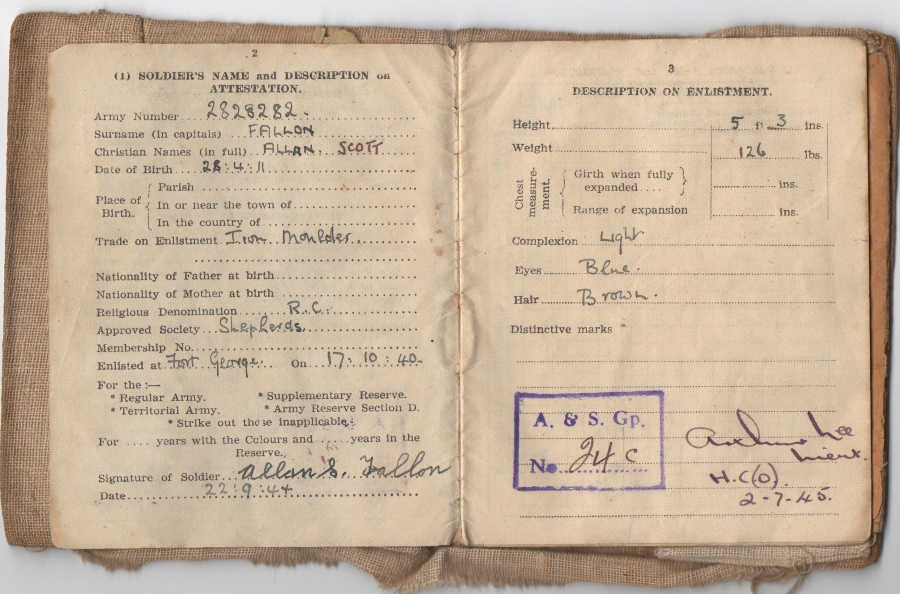 2
(1) SOLDIER'S NAME and DESCRIPTION on
ATTESTATION.
Army Number 2828282.
Surname (in capitals) FALLON
Christian Names (in full) ALLAN. SCOTT
Date of Birth 28.4.11
Place of Birth.
Parish
In or near the town of
In the country of
Trade on Enlistment Iron Moulder.
Nationality of Father at birth
Nationality of Mother at birth
Religious Denomination R.C.
Approved Society Shepherds.
Membership No.
Enlisted at Fort George. On 17.10.40.
For the :—
* Regular Army. * Supplementary Reserve.
* Territorial Army. * Army Reserve Section D.
* Strike out those inapplicable.
For .... years with the Colours and ..... years in the
Reserve.
Signature of Soldier Allan S. Fallon
Date 22.9.44
3
DESCRIPTION ON ENLISTMENT.
Height 5 ft 3 ins.
Weight 126 lbs.
Chest measurement.
Girth when fully
expanded.... ins.
Range of expansion ins.
Complexion Light
Eyes Blue.
Hair Brown.
Distinctive marks
A. & S. Gp.
No. 24 c
Lee
Lieut.
H.C(O).
2-7-45.